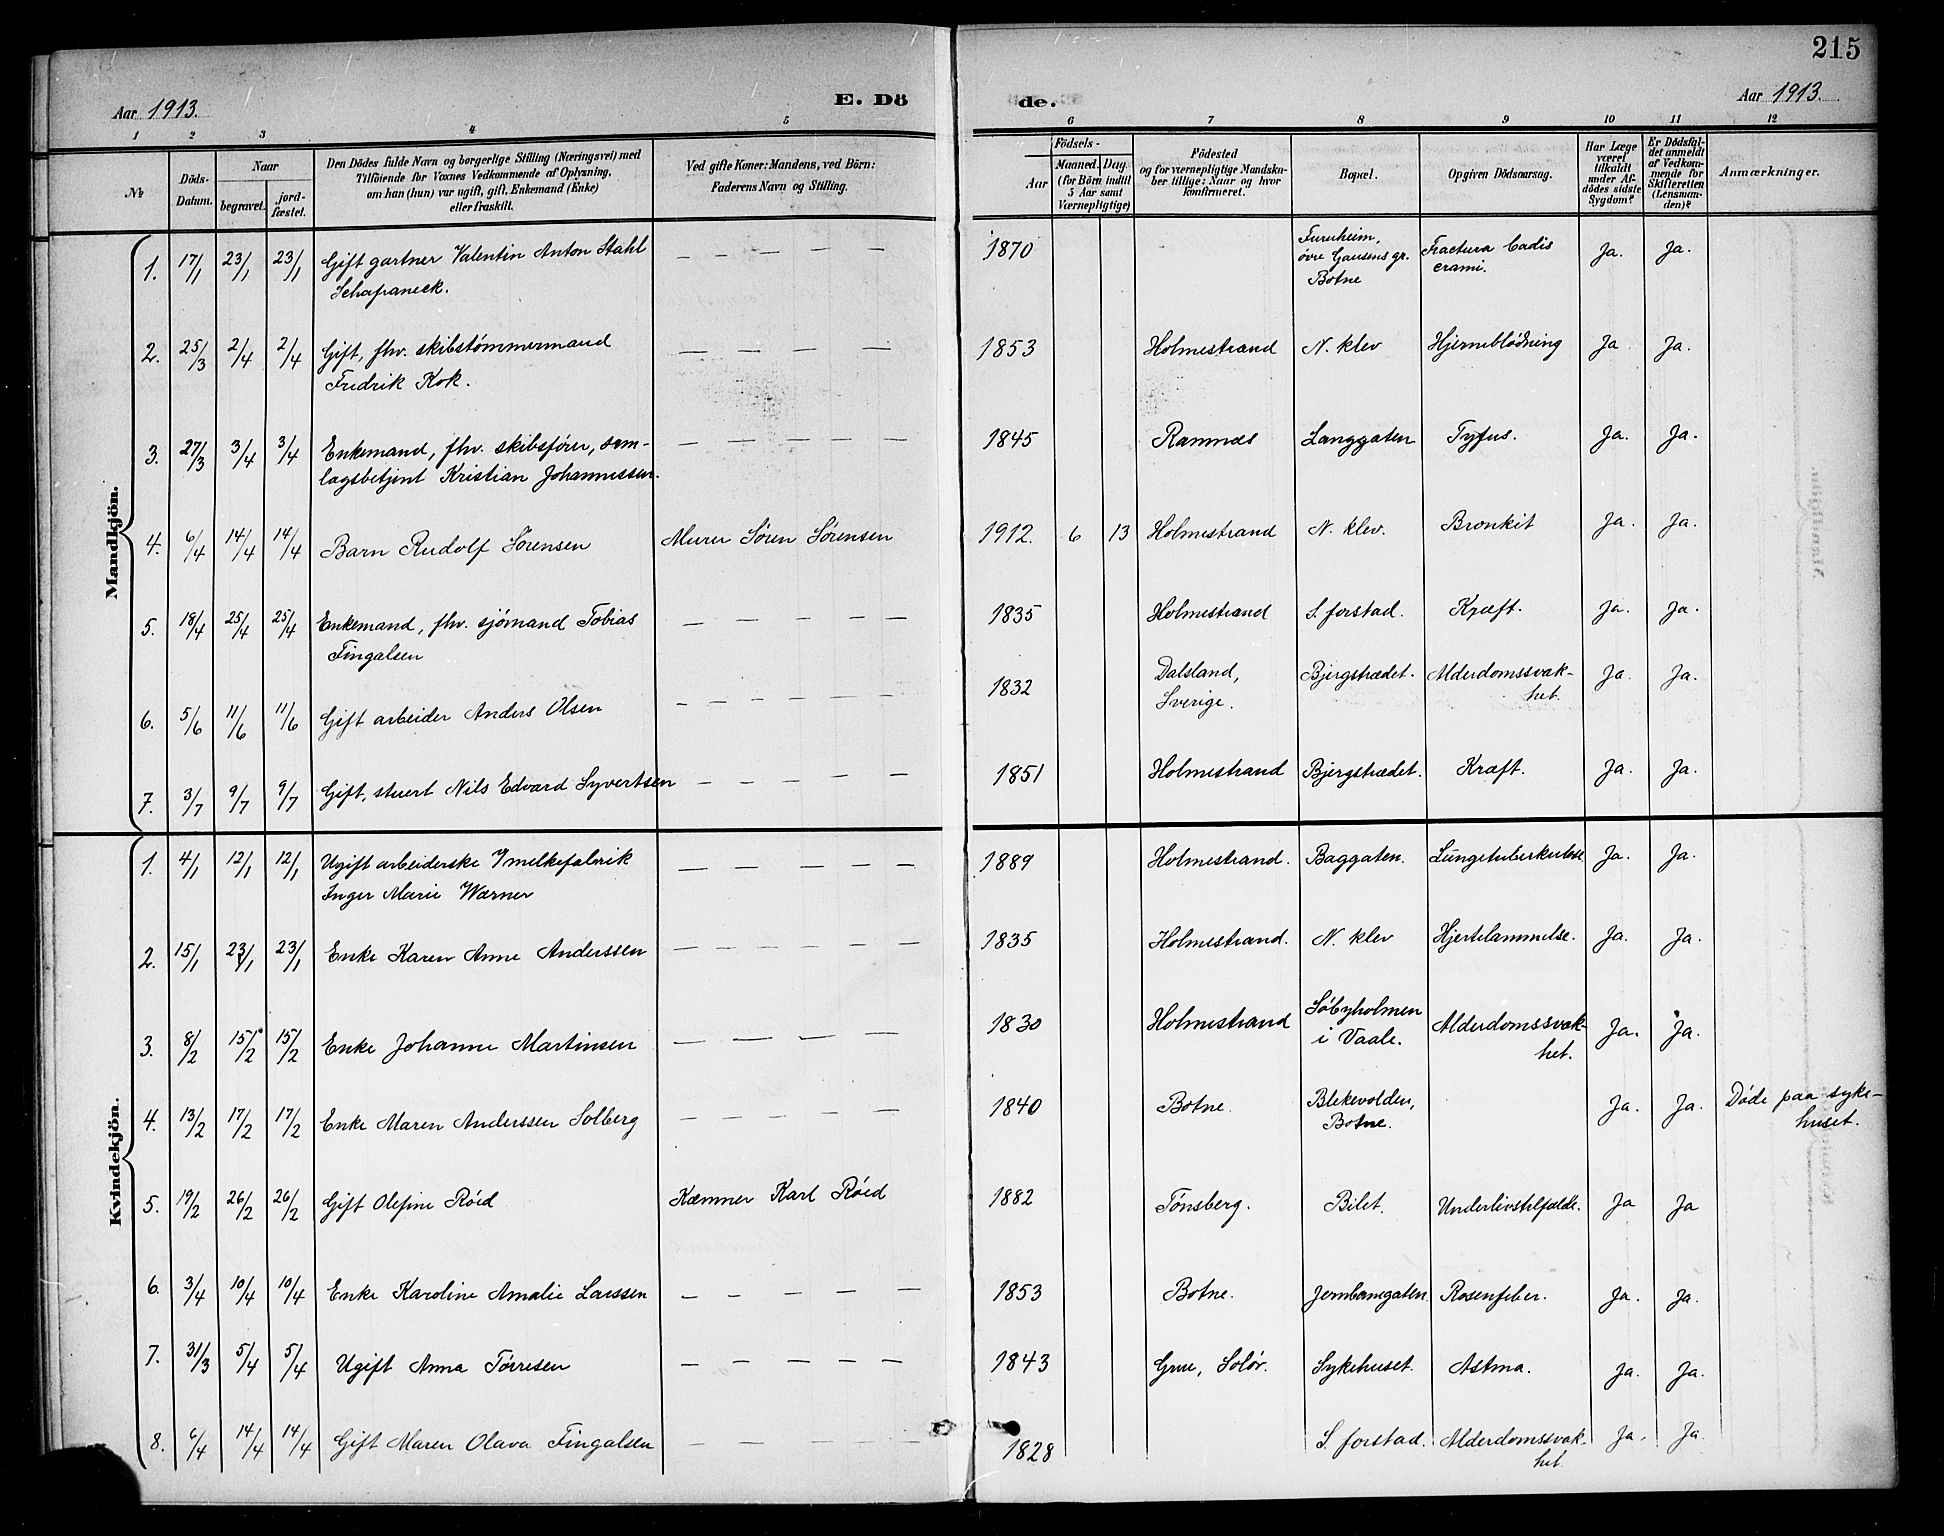 215
Aar 1913.
E. Dö
de.
Aar 1913.
1 2 3 4 5 6 7 8 9 10 11 12
№
Döds-
Datum.
Naar
begravet.
jord-
fæstet.
Den Dödes fulde Navn og borgerlige Stilling (Næringsvei) med
Tilföiende for Voxnes Vedkommende af Oplysning,
om han (hun) var ugift, gift, Enkemand (Enke)
eller fraskilt.
Ved gifte Koner: Mandens, ved Börn:
Faderens Navn og Stilling.
Födsels-
Aar
Maaned. Dag
(for Börn indtil
5 Aar samt
Værnepligtige)
Födested
og for værnepligtige Mandska-
ber tillige: Naar og hvor
konfirmeret.
Bopæl.
Opgiven Dödsaarsag.
Har Læge
været
tilkaldt
under Af-
dödes sidste
Sygdom?
Er Dödsfal-
det anmeldt
af Vedkom-
mende for
Skifteretten
(Lensman-
den)?
Anmærkninger.
Mandkjön.
1. 17/1 23/1 23/1 Gift gartner Valentin Anton Stahl
Schafraneck.
— — — — 1870 Furuheim,
øvre Gausens gr.
Botne
Fractura badis
crami.
Ja. Ja.
2. 25/3 2/4 2/4 Gift, fhv. skibstømmermand
Fredrik Kok.
— — — — 1853 Holmestrand N. klev Hjerneblødning Ja Ja.
3. 27/3 3/4 3/4 Enkemand, fhv. skibsfører, sam-
lagsbetjent Kristian Johannessen.
— — — — — 1845 Ramnæs Langgaten Tyfus. Ja. Ja.
4. 6/4 14/4 14/4 Barn Rudolf Sørensen Murer Søren Sørensen 1912. 6 13 Holmestrand N. klev. Bronkit Ja. Ja.
5. 18/4 25/4 25/4 Enkemand, fhv. sjømand Tobias
Fingalsen
— — — — — 1835 Holmestrand S. forstad. Kræft. Ja. Ja.
6. 5/6 11/6 11/6 Gift arbeider Anders Olsen — — — — — 1832 Dalsland,
Sverige.
Bjergstrædet. Alderdomssvak-
het.
Ja. Ja.
7. 3/7 9/7 9/7 Gift, stuert Nils Edvard Syvertsen — — — — 1851 Holmestrand Bjergstrædet. Kræft. Ja. Ja.
Kvindekjön.
1. 4/1 12/1 12/1 Ugift arbeiderske i melkefabrik
Inger Marie Wærner
— — — — — 1889 Holmestrand. Baggaten. Lungetuberkulose Ja. Ja.
2. 15/1 23/1 23/1 Enke Karen Anne Anderssen — — — — — 1835 Holmestrand. N. klev Hjertelammelse. Ja. Ja.
3. 8/2 15/2 15/2 Enke Johanne Martinsen — — — — 1830 Holmestrand Søbyholmen
i Vaale.
Alderdomssvak-
het.
Ja. Ja.
4. 13/2 17/2 17/2 Enke Maren Anderssen Solberg — — — — — 1840 Botne. Blekevolden,
Botne.
Ja. Ja. Døde paa syke-
huset.
5. 19/2 26/2 26/2 Gift Olefine Røed Kæmner Karl Røed 1882 Tønsberg. Bilet. Underlivstilfælde. Ja Ja
6. 3/4 10/4 10/4 Enke Karoline Amalie Larssen — — — — — 1853 Botne. Jernbanegaten. Rosenfeber. Ja. Ja.
7. 31/3 5/4 5/4 Ugift Anna Tørresen — — — — — 1843 Grue, Solør. Sykehuset. Astma. Ja. Ja.
8. 6/4 14/4 14/4 Gift Maren Olava Fingalsen — — — — — 1828 S. forstad. Alderdomssvak-
het.
Ja. Ja.